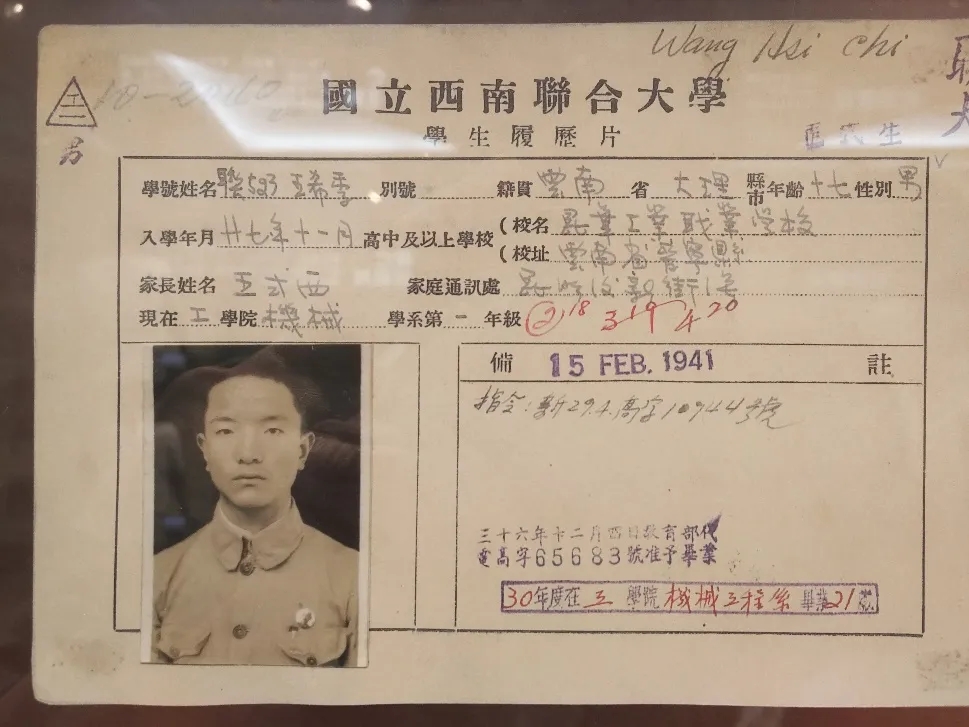 Wang Hsi Chi
工
國立西南聯合大學
學生履歷片
學號姓名 聯523 王希季 別號 籍貫 雲南 省 大理 縣市 年齡 十七 性別 男
入學年月 廿七年十一月 高中及以上學校 (校名 昆華工業職業學校
(校址 雲南省晉寧縣
家長姓名 王式西 家庭通訊處 昆明
現在 工 學院 機械 學系第 一 年級 ② 18 3 19 4 20
備 15 FEB. 1941 註
指令:新29.4.高字10944號
三十六年十二月四日教育部代
電高字65683號准予畢業
30年度在工學院機械工程系畢業